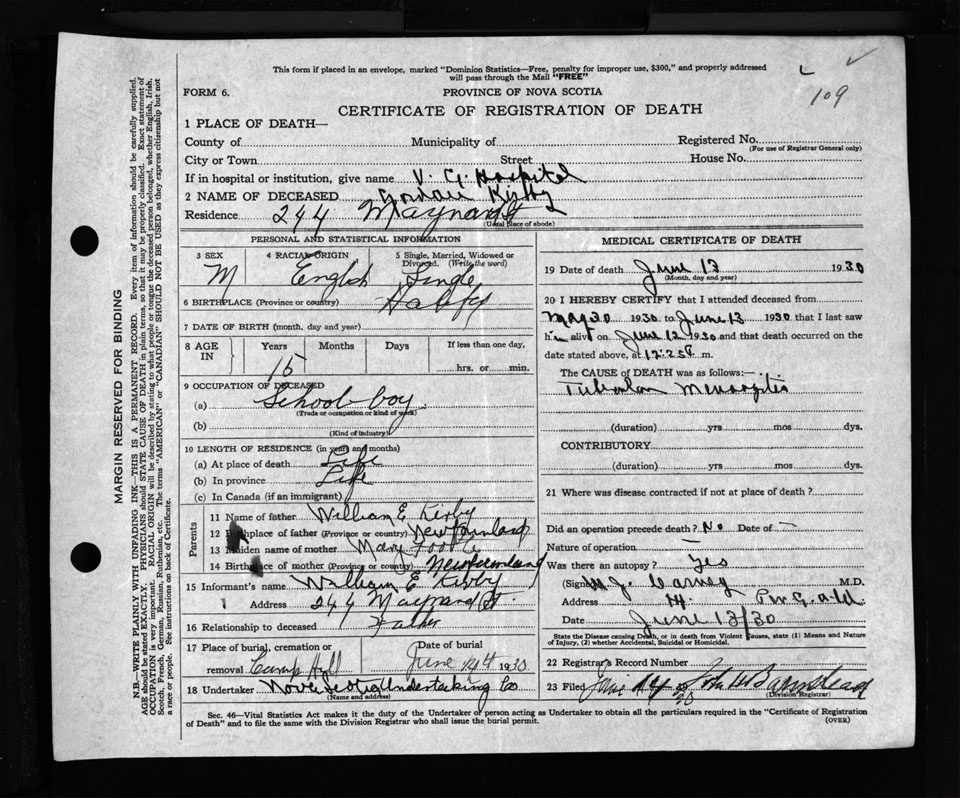 This form if placed in an envelope, marked "Dominion Statistics—Free, penalty for improper use, $300," and properly addressed
will pass through the Mail "FREE"
109
FORM 6. PROVINCE OF NOVA SCOTIA
CERTIFICATE OF REGISTRATION OF DEATH
1 PLACE OF DEATH—
County of Municipality of Registered No.
(For use of Registrar General only)
City or Town Street House No.
If in hospital or institution, give name V. G. Hospital
2 NAME OF DECEASED Kirby
Residence 244 Maynard St
(Usual place of abode)
PERSONAL AND STATISTICAL INFORMATION
3 SEX 4 RACIAL ORIGIN 5 Single, Married, Widowed or Divorced. (Write the word)
M English Single
6 BIRTHPLACE (Province or country) Halifx
7 DATE OF BIRTH (month, day and year)
8 AGE IN Years Months Days If less than one day,
15 hrs. or min.
9 OCCUPATION OF DECEASED
(a) School-boy
(Trade or occupation or kind of work)
(b)
(Kind of industry)
10 LENGTH OF RESIDENCE (in years and months)
(a) At place of death Life
(b) In province Life
(c) In Canada (if an immigrant)
Parents
11 Name of father William E. Kirby
12 Birthplace of father (Province or country) Newfoundland
13 Maiden name of mother Mary Foote
14 Birthplace of mother (Province or country) Newfoundland
15 Informant's name William E Kirby
Address 244 Maynard St.
16 Relationship to deceased Father
17 Place of burial, cremation or Date of burial
removal Camp Hill June 14th 1930
18 Undertaker Nova Scotia Undertaking Co
(Name and address)
MEDICAL CERTIFICATE OF DEATH
19 Date of death June 13 1930
(Month, day and year)
20 I HEREBY CERTIFY that I attended deceased from
May 30 1930 to June 13 1930 that I last saw
him alive on June 12 1930 and that death occurred on the
date stated above, at m.
The CAUSE OF DEATH was as follows:—
Tubercular Meningitis
(duration) yrs mos dys.
CONTRIBUTORY
(duration) yrs mos dys.
21 Where was disease contracted if not at place of death?
Did an operation precede death? No Date of —
Nature of operation —
Was there an autopsy? Yes
(Signed) J. Carney M.D.
Address
Date June 13/30
State the Disease causing Death, or in death from Violent Causes, state (1) Means and Nature
of Injury, (2) whether Accidental, Suicidal or Homicidal.
22 Registrar's Record Number
23 Filed John Barnstead
Division Registrar
Sec. 46—Vital Statistics Act makes it the duty of the Undertaker or person acting as Undertaker to obtain all the particulars required in the "Certificate of Registration
of Death" and to file the same with the Division Registrar who shall issue the burial permit.
(OVER)
MARGIN RESERVED FOR BINDING
N.B.—WRITE PLAINLY WITH UNFADING INK—THIS IS A PERMANENT RECORD. Every item of information should be carefully supplied.
AGE should be stated EXACTLY. PHYSICIANS should STATE CAUSE OF DEATH in plain terms, so that it may be properly classified. Exact statement of
OCCUPATION is very important. RACIAL ORIGIN will be described by stating to what people or tongue the deceased person belonged, whether English, Irish,
Scotch, French, German, Russian, Ruthenian, etc. The terms "AMERICAN" or "CANADIAN" SHOULD NOT BE USED as they express citizenship but not
a race or people. See instructions on back of Certificate.